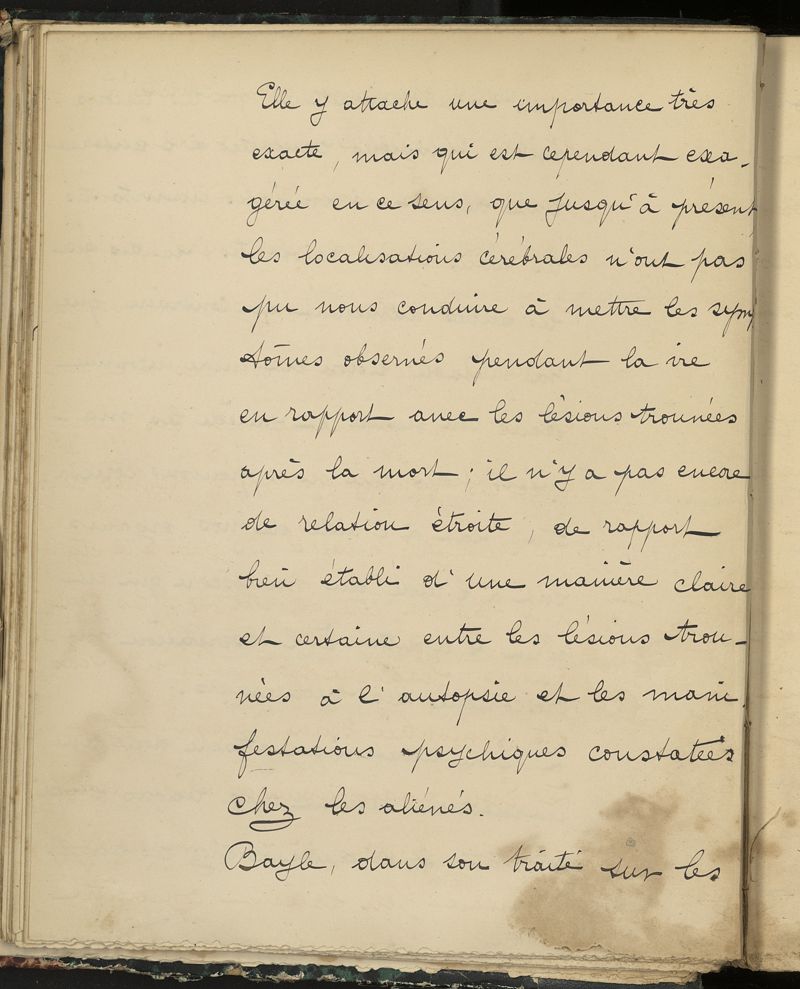 Elle y attache une importance très
exacte, mais qui est cependant exa-
gérée en ce sens, que jusqu'à présent
les localisations cérébrales n'ont pas
pu nous conduire à mettre les symp
tômes observés pendant la vie
en rapport avec les lésions trouvées
après la mort; il n'y a pas encore
de relation étroite, de rapport
bien établi d'une manière claire
et certaine entre les lésions trou-
vées à l'autopsie et les mani-
festations psychiques constatées
chez les aliénés.
Bayle, dans son traité sur les